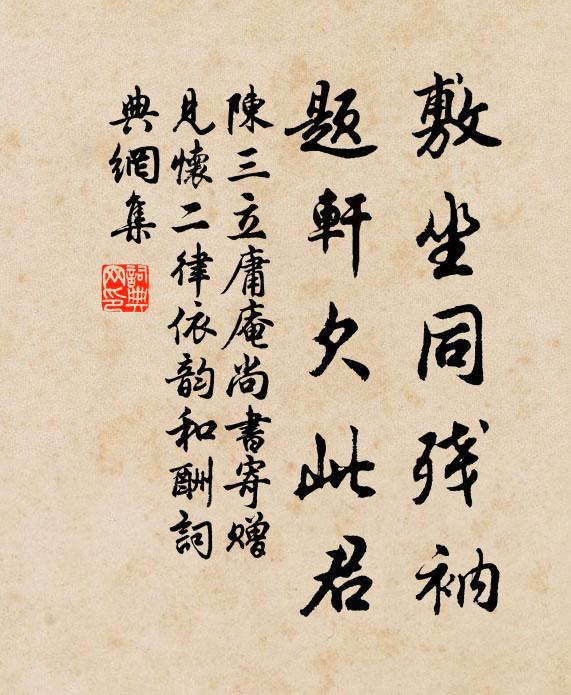 敷坐同残衲
题軒欠此君
陳三立庸庵尚書寄贈
見懷二律依韵和酬詞
典網集
詞典網印